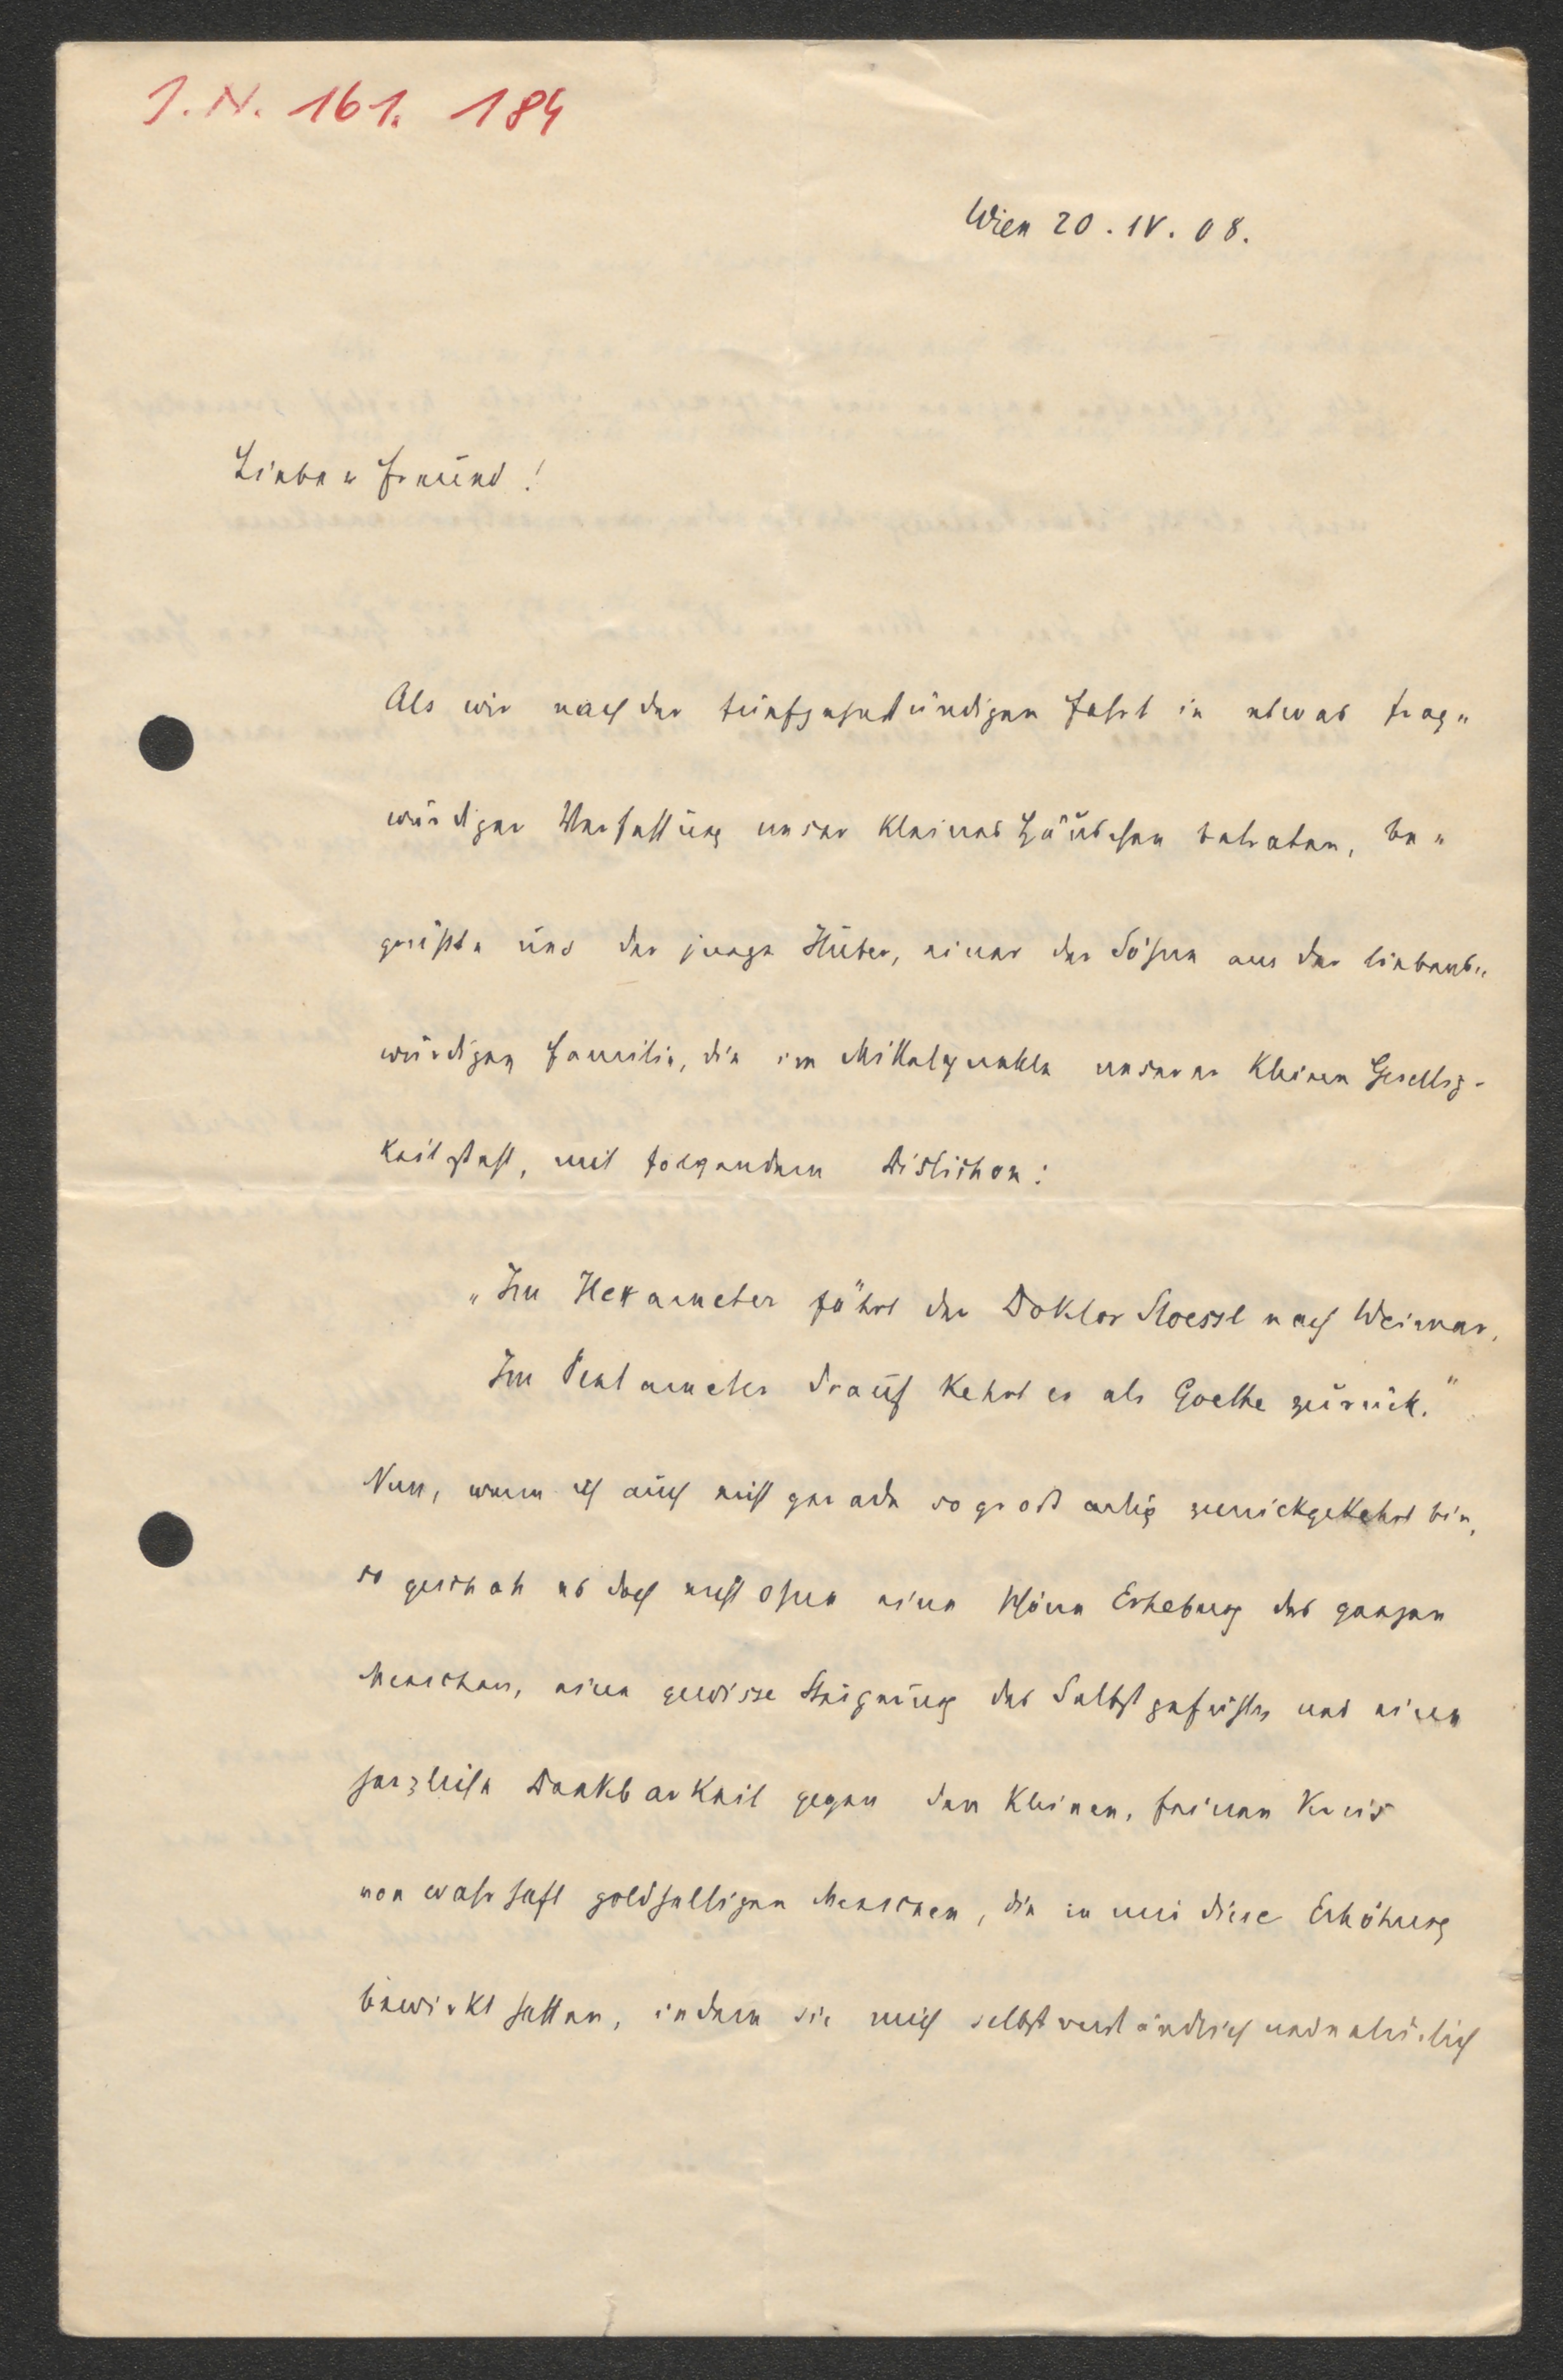 J. N. 161. 184
Wien 20. IV. 08.
Lieber Freund!
Als wir nach der fünfzehnstündigen Fahrt in etwas frag-
würdiger Verfassung unser kleines Häuschen betraten, be-
grüßte uns der junge Huber, einer der Söhne aus der liebens-
würdigen Familie, die im Mittelpunkte unserer kleinen Gesellig-
keit steht, mit folgendem Distichon:
„Im Hexameter fährt der Doktor Stoessl nach Weimar,
Im Pentameter drauf kehrt er als Goethe zurück."
Nun, wenn ich auch nicht gerade so großartig zurückgekehrt bin,
so geschah es doch nicht ohne eine schöne Erhebung des ganzen
Menschen, eine gewisse Steigerung des Selbstgefühls und eine
herzliche Dankbarkeit gegen den kleinen, feinen Kreis
von wahrhaft goldhaltigen Menschen, die in mir diese Erhöhung
bewirkt hatten, indem sie mich selbstverständlich und natürlich